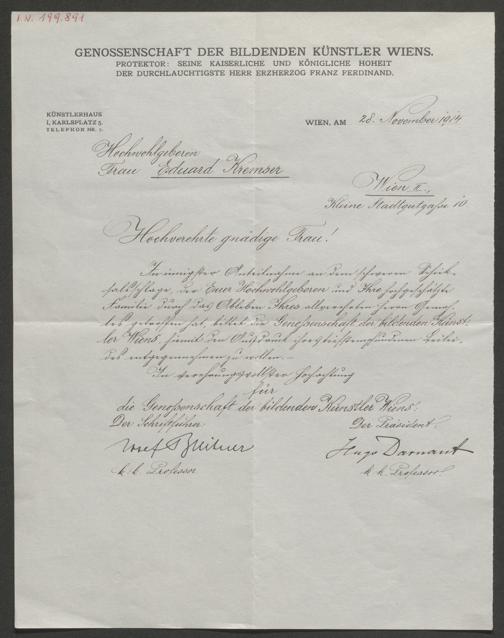 I.N. 199.891
GENOSSENSCHAFT DER BILDENDEN KÜNSTLER WIENS.
PROTEKTOR: SEINE KAISERLICHE UND KÖNIGLICHE HOHEIT
DER DURCHLAUCHTIGSTE HERR ERZHERZOG FRANZ FERDINAND.
KÜNSTLERHAUS
I, KARLSPLATZ 5.
TELEPHON NR. 
WIEN, AM 28. November 1914
Hochwohlgeboren
Frau Eduard Kremser
Wien II.,
Kleine Stadtgutgasse 10
Hochverehrte gnädige Frau!
In innigster Anteilnahme an dem schweren Schick-
salsschlage, der Euer Hochwohlgeboren und Ihre hochgeschätzte
Familie durch das Ableben Ihres allgeehrten Herrn Gemah-
les getroffen hat, bittet die Genoßenschaft der bildenden Künst-
ler Wiens hiemit den Ausdruck herzlichstempfundenen Beilei-
des entgegennehmen zu wollen.
In verehrungsvollster Hochachtung
für
die Genoßenschaft der bildenden Künstler Wiens:
Der Schriftführer
Der Präsident:
Hugo Darnaut
k. k. Professor
k. k. Professor